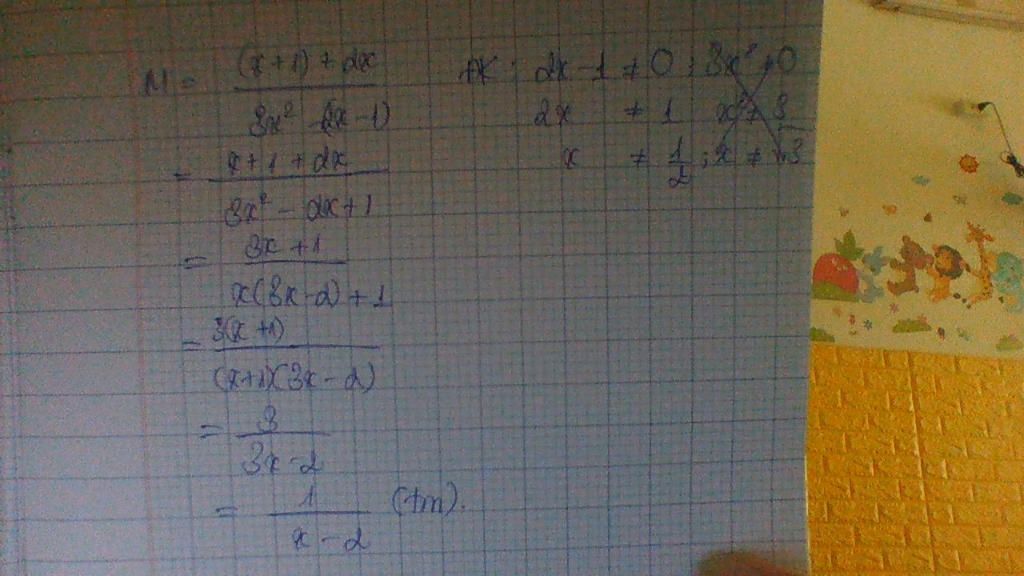 M = \frac{(x+1) + 2x}{3x² - (2x-1)}
ĐK: 2x - 1 ≠ 0 ; 3x² ≠ 0
2x ≠ 1 x² ≠ 3
x ≠ \frac{1}{2} ; x ≠ 3
= \frac{x + 1 + 2x}{3x² - 2x + 1}
= \frac{3x + 1}{x(3x-2) + 1}
= \frac{3(x+1)}{(x+1)(3x-2)}
= \frac{3}{3x-2}
= \frac{1}{x-2} (tm).